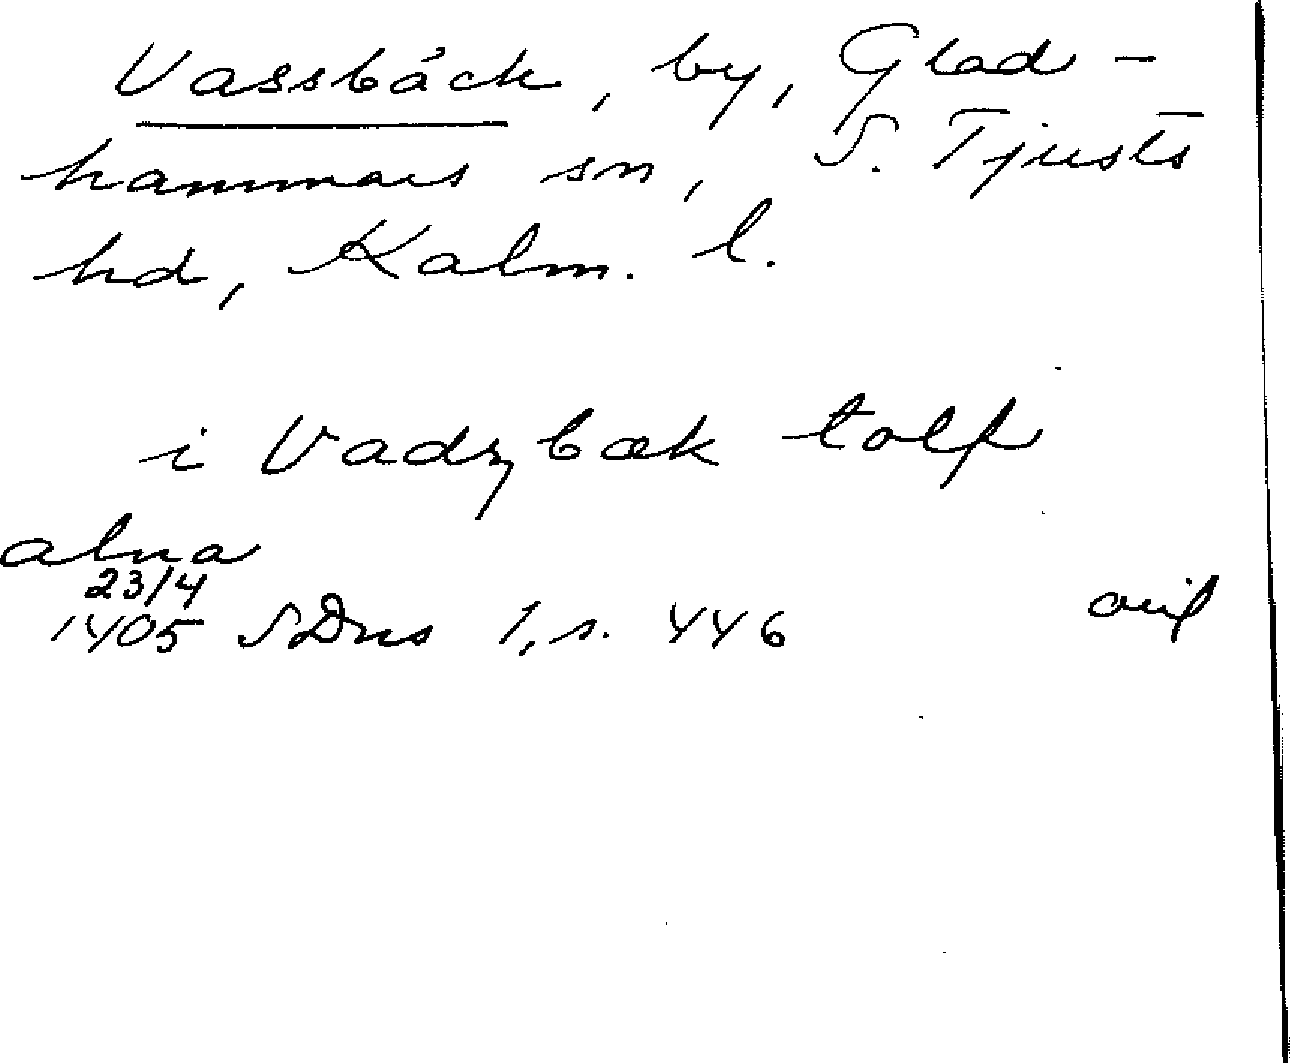 Vassbäck, by, Glad-
hammars sn, S. Tjusts
hd, Kalm. l.
i Vadzbæk tolf
alna
23/4
1405 SDns 1, s. 446
orig